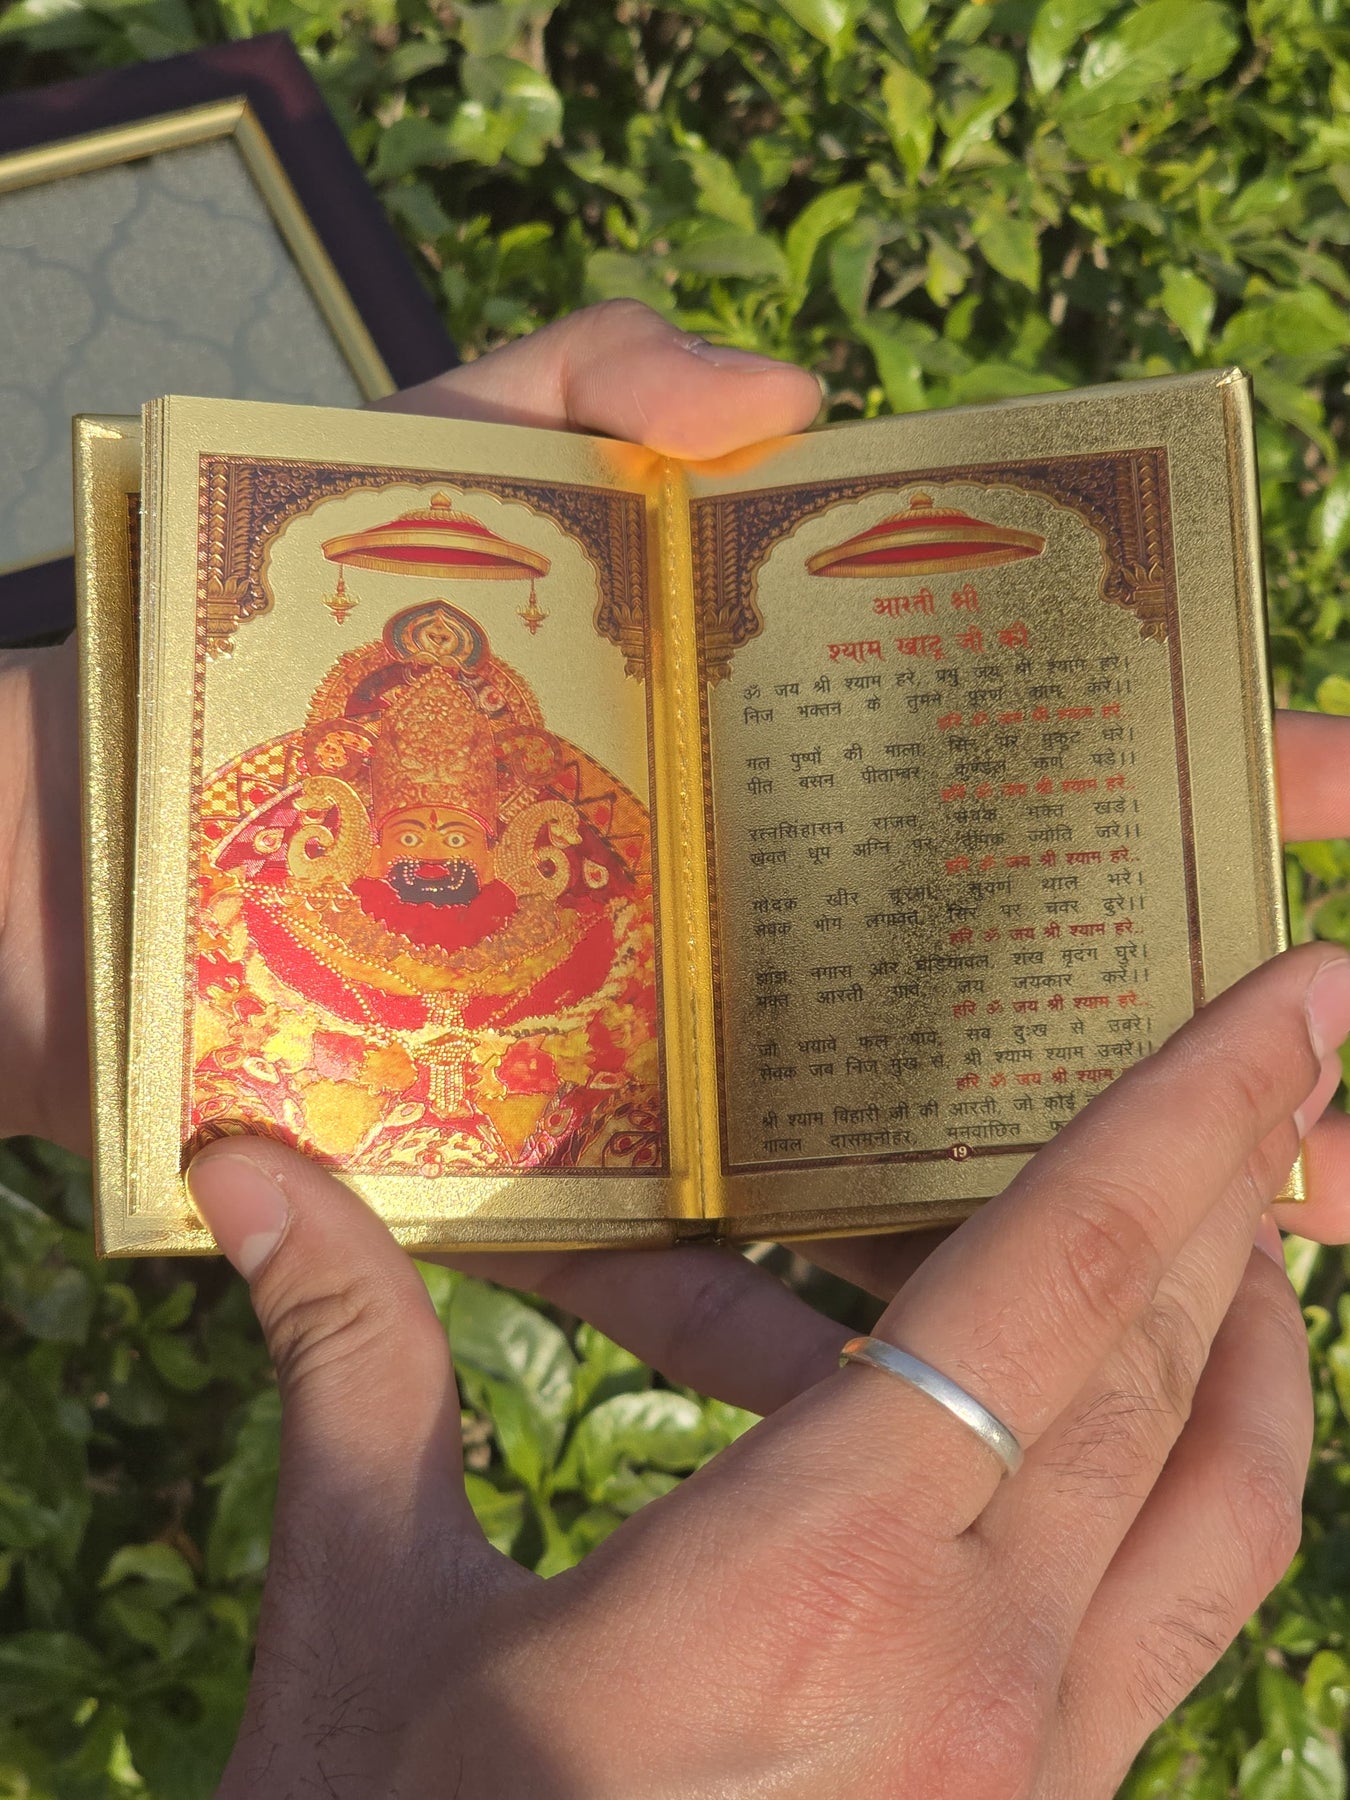 आरती श्री
श्याम खाटू जी की
ॐ जय श्री श्याम हरे, प्रभु जय श्री श्याम हरे।
निज भक्तन के तुमने पूरण काम करे।।
हरि ॐ जय श्री श्याम हरे..
गल पुष्पों की माला, सिर पर मुकुट धरे।
पीत बसन पीताम्बर, कुण्डल कर्ण पड़े।।
हरि ॐ जय श्री श्याम हरे..
रत्नसिंहासन राजत, सेवक भक्त खड़े।
खेवत धूप अग्नि पर, दीपक ज्योति जरे।।
हरि ॐ जय श्री श्याम हरे..
मोदक खीर चूरमा, सुवर्ण थाल भरे।
सेवक भोग लगावत, सिर पर चवर ढुरे।।
हरि ॐ जय श्री श्याम हरे..
झांझ, नगारा और घड़ियावल, शंख मृदंग घुरे।
भक्त आरती गावे, जय जयकार करे।।
हरि ॐ जय श्री श्याम हरे..
जो धयावे फल पावे, सब दुःख से उबरे।
सेवक जब निज मुख से, श्री श्याम श्याम उचरे।।
हरि ॐ जय श्री श्याम
श्री श्याम विहारी जी की आरती, जो कोई
गावल दासमनोहर, मनवांछित
19